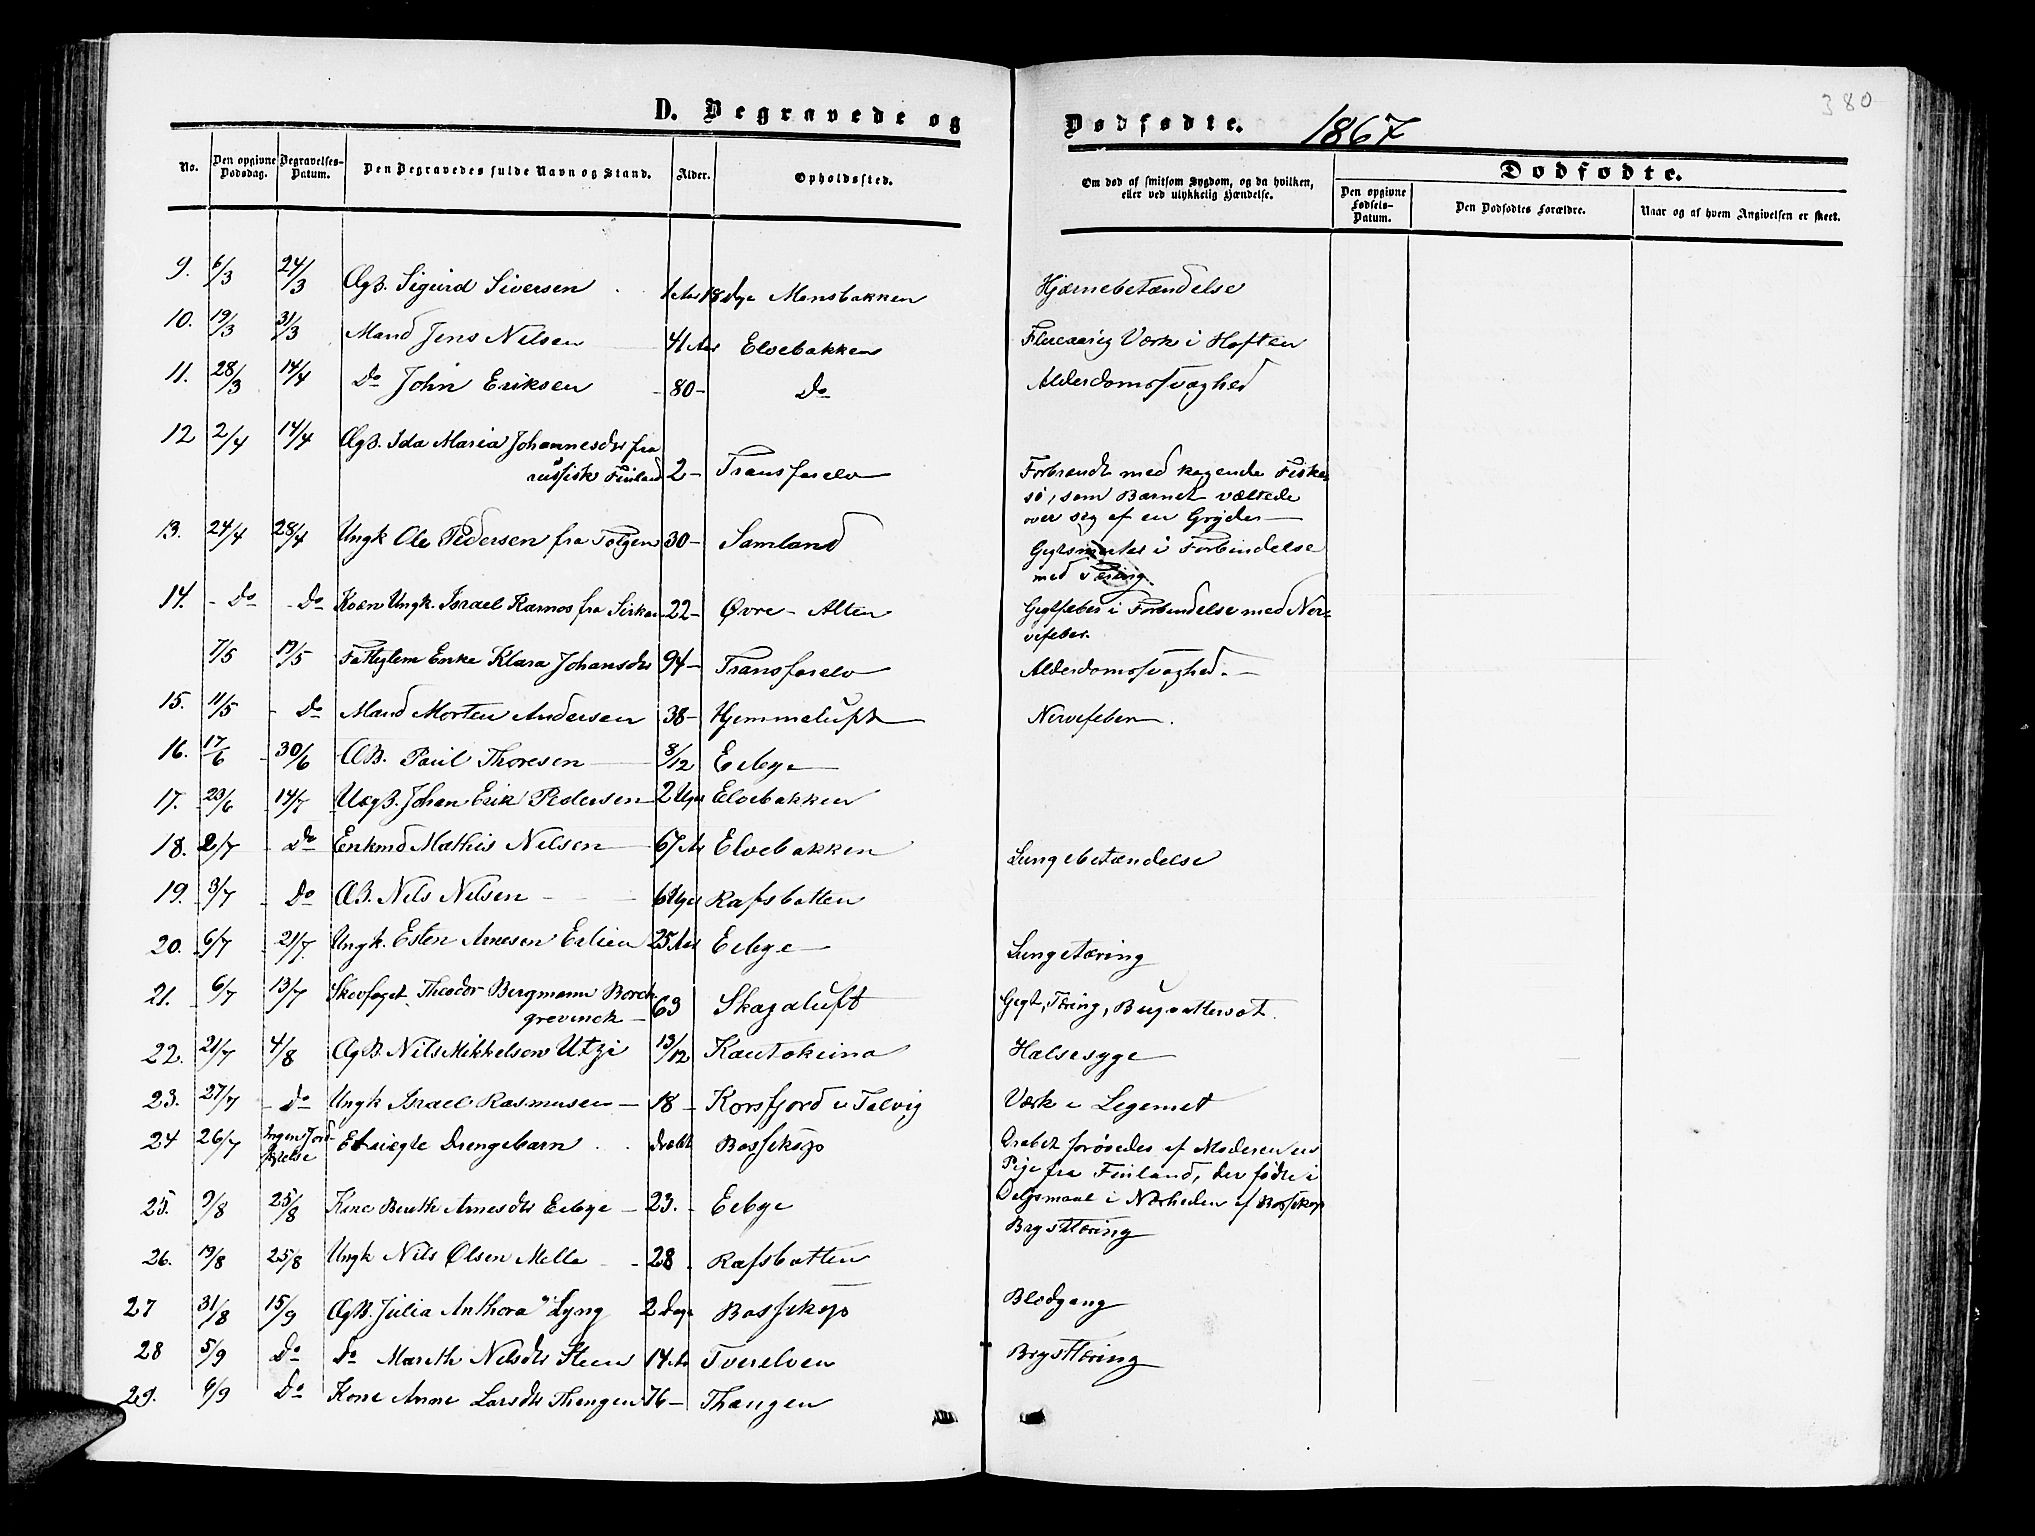 380
D. Begravede og Dødfødte. 1867
No. Den opgivne Dødsdag. Begravelses-Datum. Den Begravedes fulde Navn og Stand. Alder. Opholdssted. Om død af smitsom Sygdom, og da hvilken, eller ved ulykkelig Hændelse. Dødfødte.
Den opgivne Fødsels-Datum. Den Dødfødtes Forældre. Naar og af hvem Angivelsen er skeet.
9. 6/3 24/3 ÆgB. Sigurd Siversen 1 Aar 18 Dge Monsbakken Hjærnebetændelse
10. 19/3 31/3 Mand Jens Nilsen 41 Aar Elvebakken Flereaarig Værk i Hoften
11. 28/3 14/4 Do John Eriksen - 80 - Do Alderdomssvaghed
12 2/4 14/4 ÆgB. Ida Maria Johannesdtr fra
russisk Finland 2 - Transfarelv Forbrændt med kogende Fiske-
sø, som Barnet væltede
over sig af en Gryde
13. 24/4 28/4 Ungk Ole Pedersen fra Tolgen 30 - Samland Gigtsmerter i Forbindelse
med Tæring
14. - Do - Do Kvæn Ungk. Israel Karnos fra 22 - Øvre - Alten Gigtfeber i Forbindelse med Ner-
vefeber.
7/5 19/5 Fattiglem Enke Klara Johansdtr 94 - Transfarelv Alderdomssvaghed.
15. 11/5 - Do Mand Morten Andersen 38 - Hjemmeluft Nervefeber
16. 17/6 - 30/6 ÆB. Paul Thoresen 8/12 Eibye
17. 23/6 14/7 UægB. Johan Erik Pedersen 2 Uger Elvebakken
18. 2/7 - Do Enkmd Mathis Nilsen 67 Ar Elvebakken Lungebetændelse
19. 3/7 - Do ÆB. Nils Nilsen 6 Uger Rafsbotten
20. 6/7 - 21/7. Ungk. Esten Arnesen Eelien 25 Aar Eibye Lungetæring
21. 6/7 13/7 Skovfoget Theodor Bergmann Borch
grevinck - 63 Skagaluft Gigt, Tæring, Bugvattersot.
22. 21/7 4/8 ÆgB. Nils Mikkelsen Utzi 13/12 Kautokeino Halsesyge
23. 27/7 - Do Ungk Israel Rasmusen - 18 - Korsfjord i Talvig Værk i Legemet
24 26/7 Ingen Jord- Et uægte Drengebarn dræbt Bossekop Drabet forøvedes af Moderen en
Pige fra Finland, der fødte i
25. 9/8 25/8 Kone Berith Arnesdtr Eibye - 23. - Eibye Dølgsmaal i Nærheden af Bossekop
Brysttæring
26. 19/8 25/8 Ungk Nils Olsen Mella - 28 - Rafsbotten
27 31/8 15/9 ÆgB. Julia Anthora Lyng 2 Dage Bossekop Blodgang
28 5/9 Do Do Mareth Nilsdtr Steen 14 Ar Tverelven Brysttæring
29. 6/9 Do Kone Anne Larsdtr Thangen 76 - Thangen